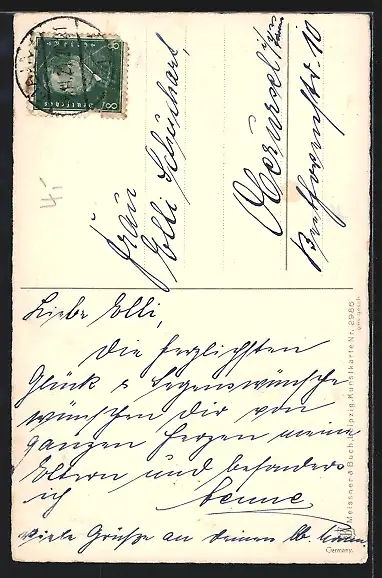 Frau
Elli Schuchart,
Oberursel i/Taunus
Beethovenstr. 10
Liebe Elli,
Die herzlichsten
Glück & Segenswünsche
wünschen Dir von
ganzen Herzen meine
Eltern und besonders
ich Aenne
Viele Grüße an deinen lb. Mann
Meissner & Buch, Leipzig. Kunstkarte Nr. 2985
ges. gesch.
Germany.
Deutsches
8 8
4,-